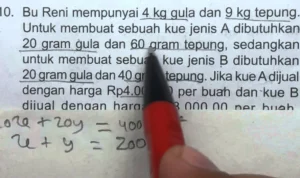 10. Bu Reni mempunyai 4 kg gula dan 9 kg tepung.
Untuk membuat sebuah kue jenis A dibutuhkan
20 gram gula dan 60 gram tepung, sedangkan
untuk membuat sebuah kue jenis B dibutuhkan
20 gram gula dan 40 gr tepung. Jika kue A dijual
dengan harga Rp4.00 per buah dan kue B
dijual dengan harga 3.000,00 per buah
20x + 20y = 400
x + y = 200